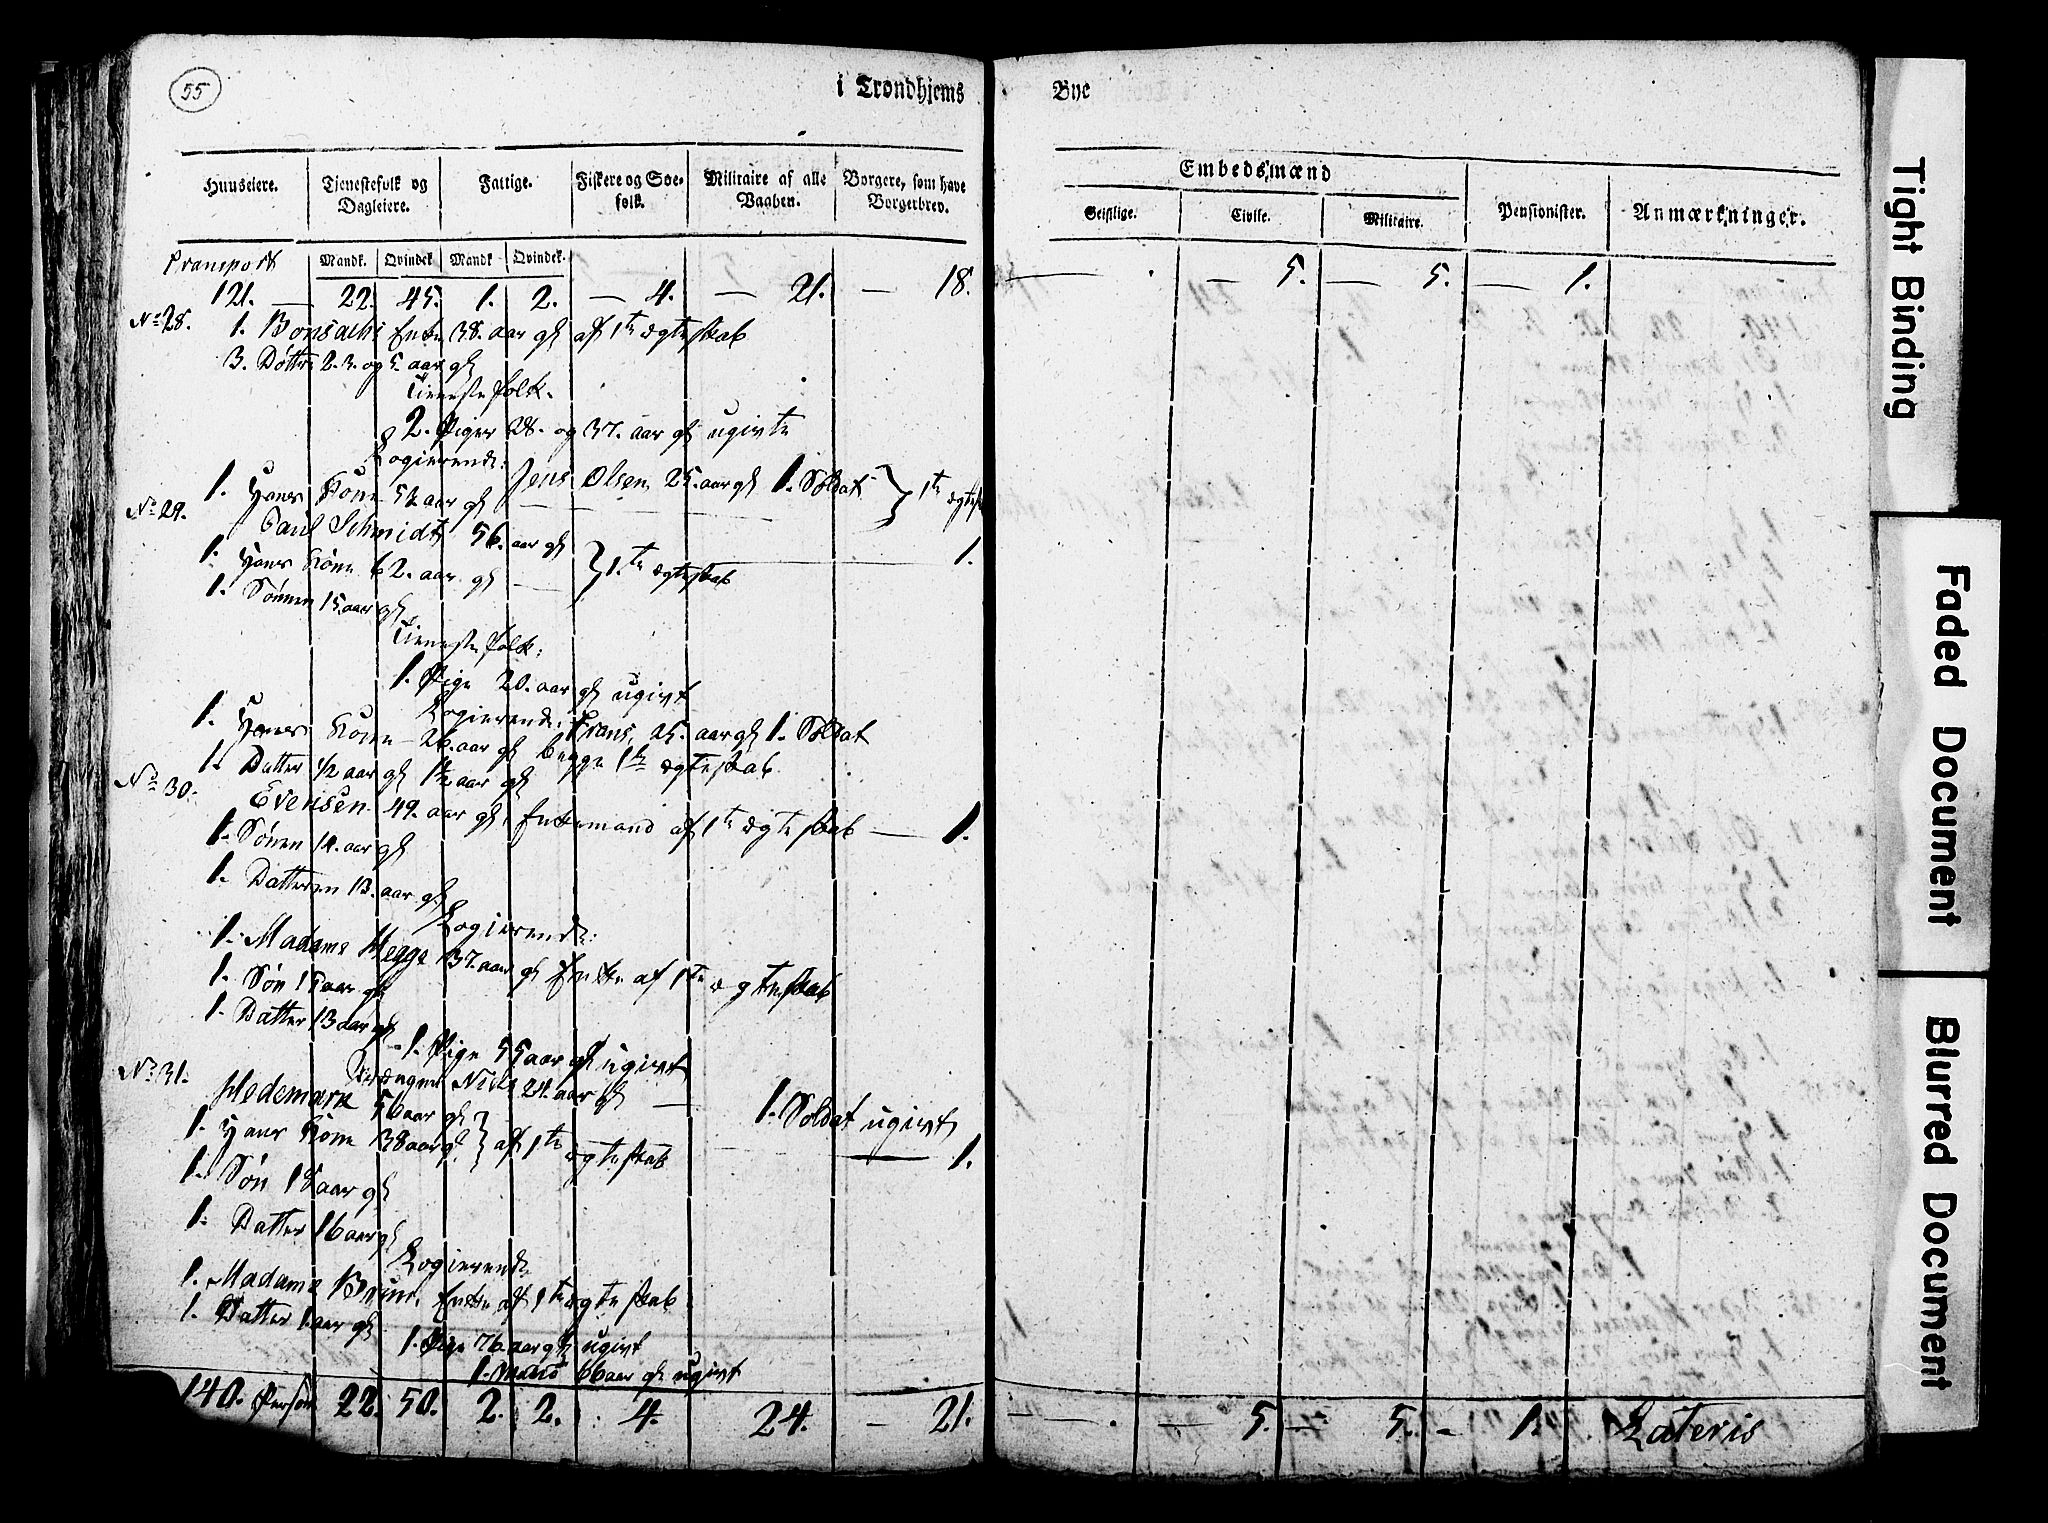 55
i Trondhjems Bye
Huuseiere. Tjenestefolk og Dagleiere. Fattige. Fiskere og Søefolk. Militaire af alle Vaaben. Borgere, som have Borgerbrev.
Embedsmænd
Geistlige. Civile. Militaire. Pensionister. Anmærkninger.
Mandk. Qvindek. Mandk. Qvindek.
Transport
121. — 22. 45. 1. 2. — 4. — 21. — 18. — . — 5. — 5. — 1.
No 28. 1. Enke 38. aar gl af 1te ægteskab
3. Døttre 2. 3. og 5. aar gl
Tieneste folk.
2. Piger 28. og 37. aar gl ugivte
Logierende:
Jens Olsen 25. aar gl 1. Soldat } 1te
1. Hans Kone 52 aar gl
No 29. Paul Schmidt 56. aar gl
1. Hans Kone 62. aar gl — } 1.te ægteskab — 1.
1. Sønnen 15. aar gl
Tieneste folk:
1. Pige 20. aar gl ugivt
Logierende: Frans, 25. aar gl 1. Soldat
1. Hans Kone 26. aar gl begge 1te ægteskab
1. Datter 1/2 aar gl
No 30. Evensen 49. aar gl. Enkemand af 1te ægteskab — 1.
1. Sønen 14. aar gl
1. Datteren 13. aar gl
Logierende:
1. Madame Hegge 37. aar gl Enke af 1te ægteskab
1. Søn 15 aar gl
1. Datter 13 aar gl
1. Pige 55 aar gl ugivt
Niels 24. aar gl — 1. Soldat ugivt
No 31. Hedemark 56 aar gl
1. Hans Kone 38 aar gl } af 1te ægteskab — 1.
1. Søn 18 aar gl
1. Datter 16 aar gl
Logierende
1. Madame Brun, Enke af 1te ægteskab
1. Datter 1. aar gl
1. Pige 76. aar gl ugivt
1. 66 aar gl ugivt
140. Person 22. 50. 2. 2. 4. 24. — 21. — . — 5. — 5. — 1. Lateris
Tight Binding
Faded Document
Blurred Document